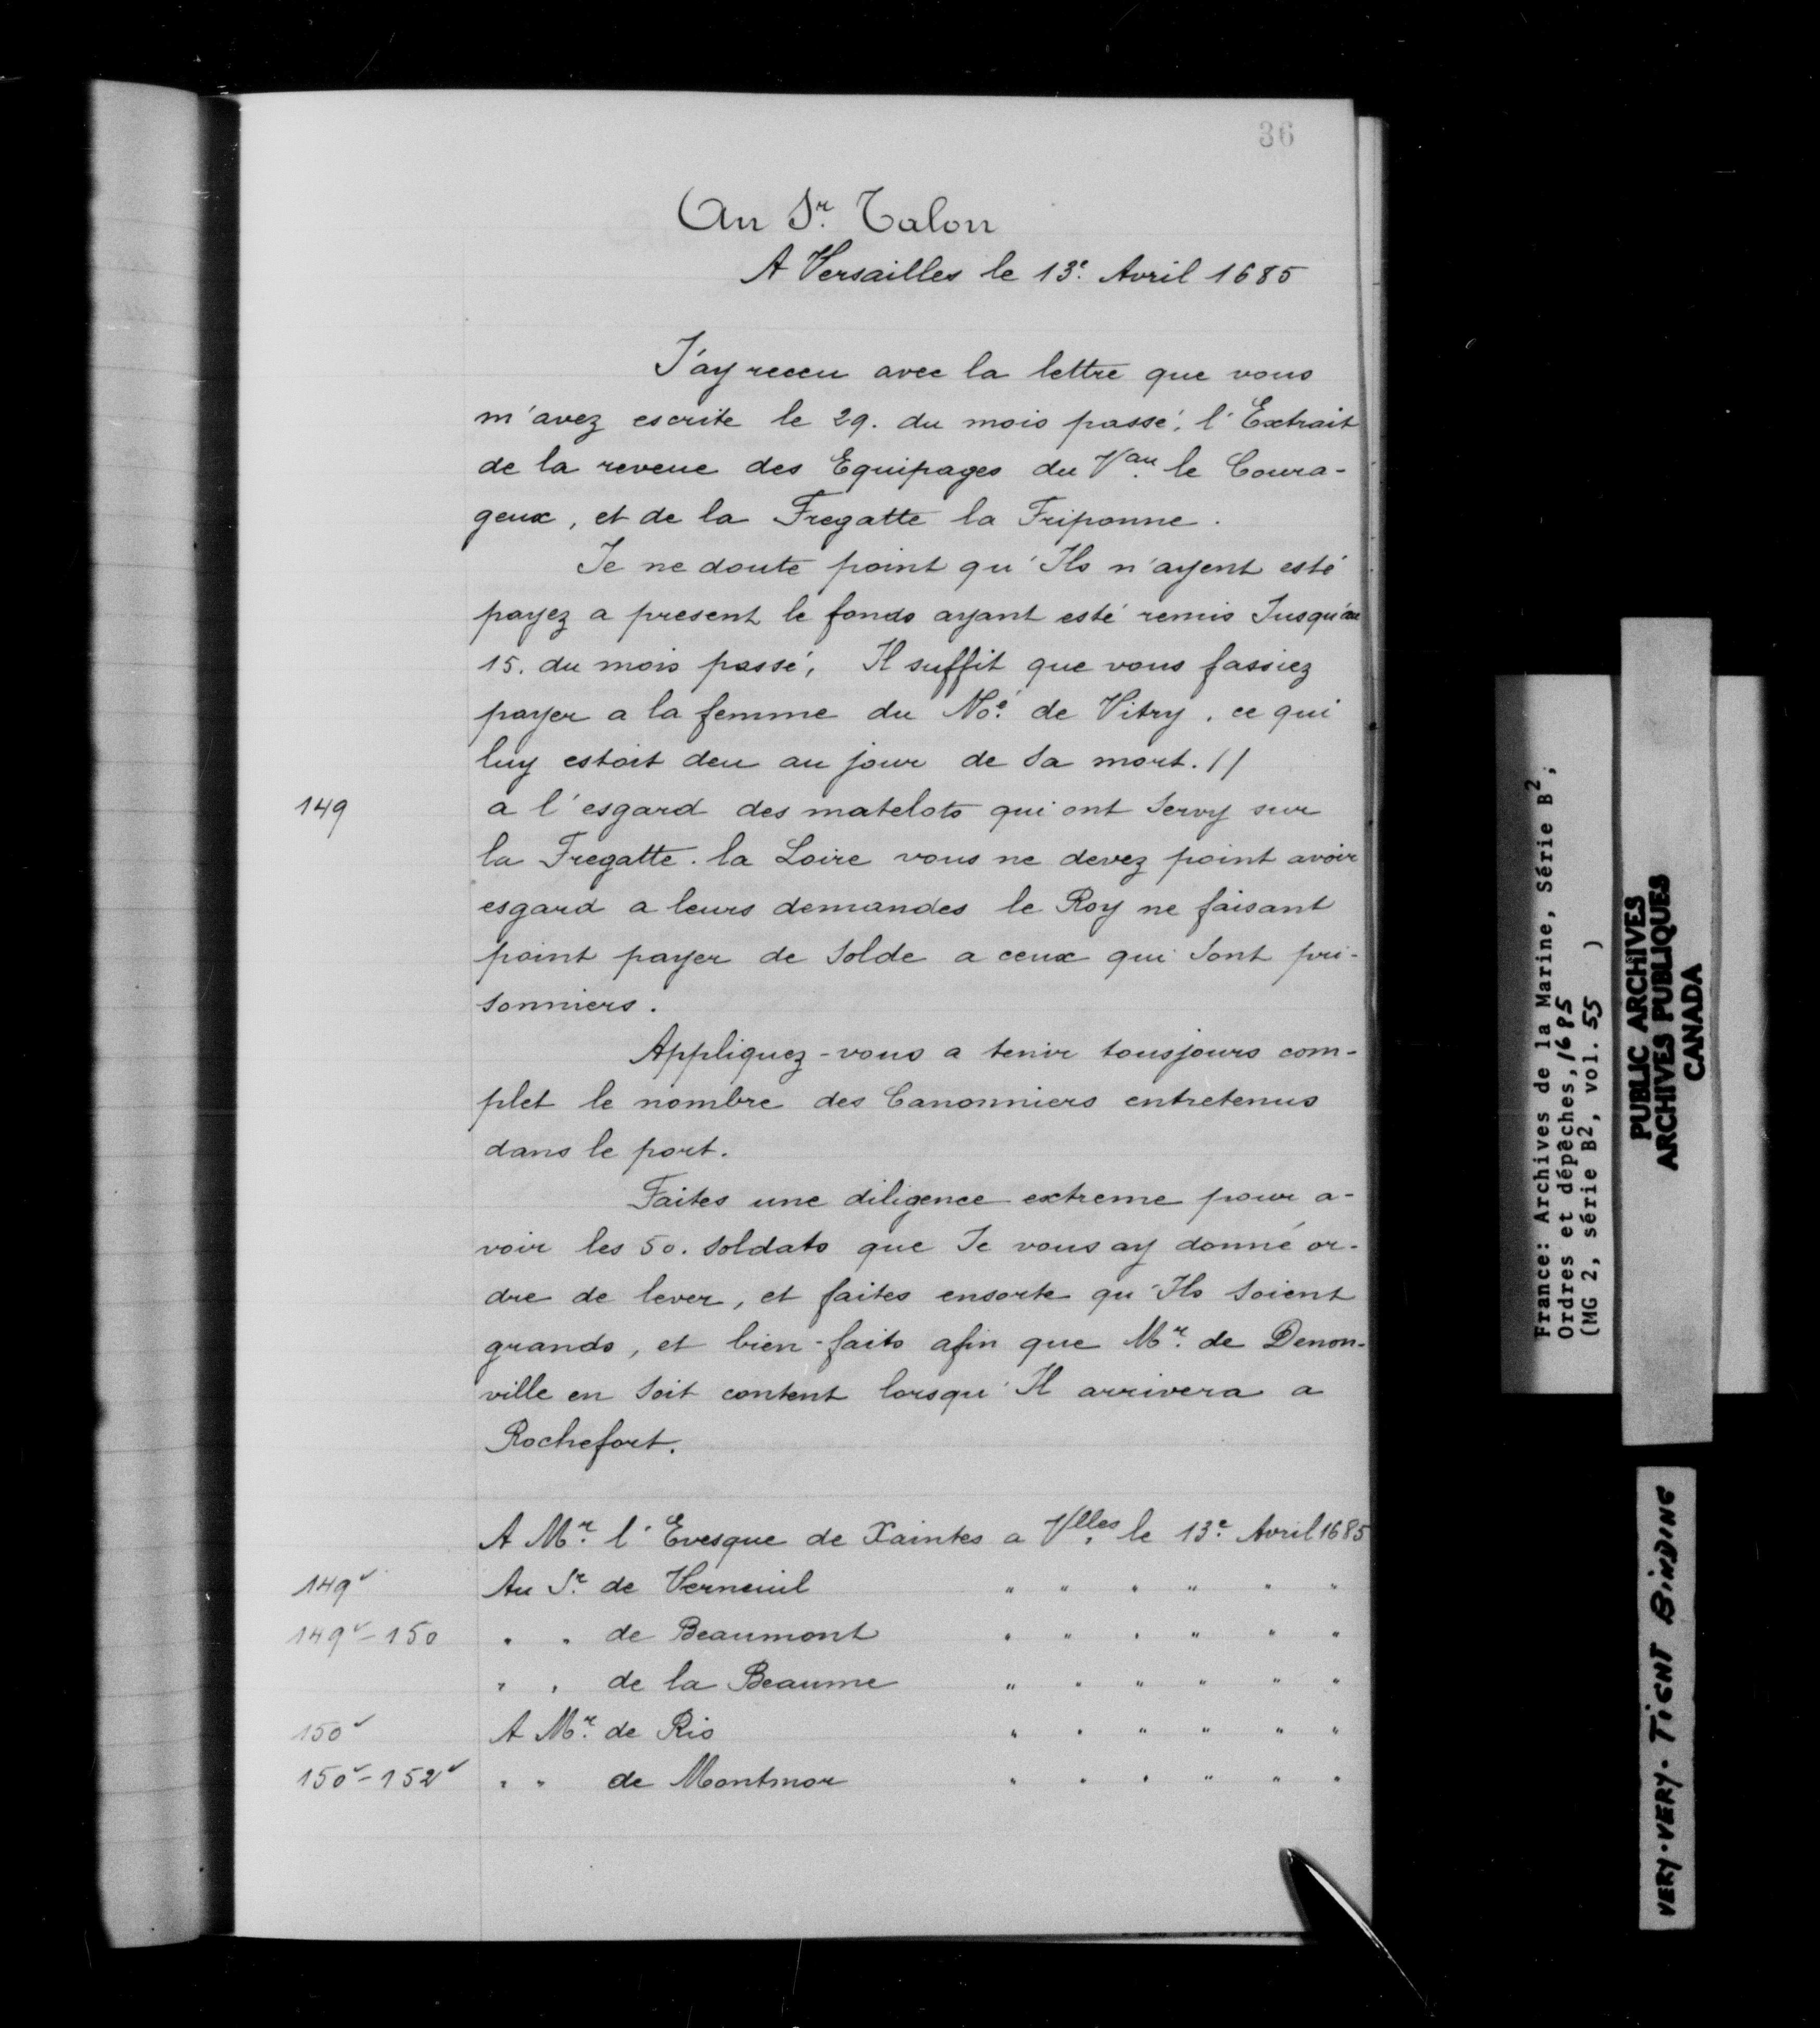 36
Au Sr. Talon
A Versailles le 13e. Avril 1685
J'ay receu avec la lettre que vous
m'avez escrite le 29. du mois passé, l'Extrait
de la reveue des Equipages du Vau. le Coura-
geux, et de la Fregatte la Friponne.
Je ne doute point qu'Ils n'ayent esté
payez a present le fonds ayant esté remis Jusqu'au
15. du mois passé, Il suffit que vous fassiez
payer a la femme du Né. de Vitry, ce qui
luy estoit deu au jour de sa mort. //
149 a l'esgard des matelots qui ont servy sur
la Fregatte. la Loire vous ne devez point avoir
esgard a leurs demandes le Roy ne faisant
point payer de solde a ceux qui sont pri-
sonniers.
Appliquez-vous a tenir tousjours com-
plet le nombre des Canonniers entretenus
dans le port.
Faites une diligence extreme pour a-
voir les 50. soldats que Je vous ay donné or-
dre de lever, et faites ensorte qu'Ils soient
grands, et bien-faits afin que Mr. de Denon-
ville en soit content lorsqu'Il arrivera a
Rochefort.
A Mr. l'Evesque de Xaintes a Vlles. le 13e. Avril 1685
149v Au Sr. de Verneuil " " " " " "
149v-150 " " de Beaumont " " " " " "
" " de la Beaume " " " " " "
150v A Mr. de Ris " " " " " "
150v-152v " " de Montmor " " " " " "
France: Archives de la Marine, Série B2,
Ordres et dépêches, 1685
(MG 2, série B2, vol. 55 )
PUBLIC ARCHIVES
ARCHIVES PUBLIQUES
CANADA
VERY-VERY-TIGHT BINDING